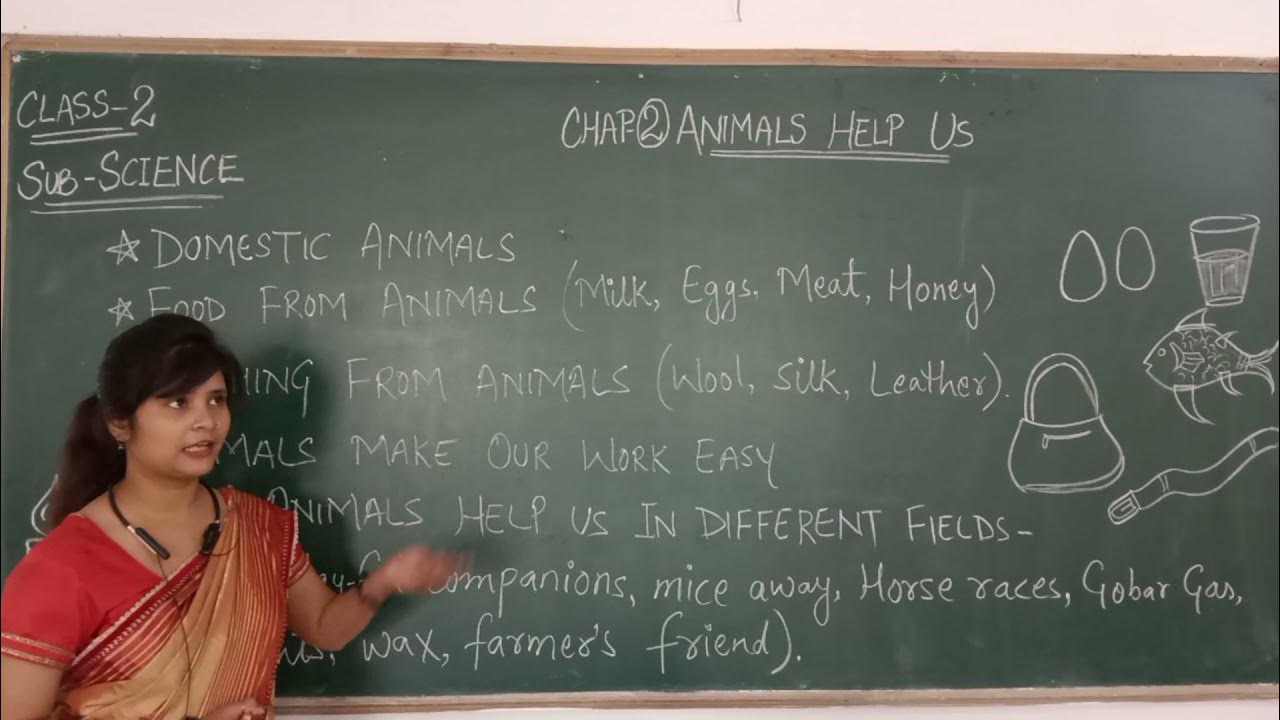 CLASS-2
CHAP-② ANIMALS HELP US
SUB-SCIENCE
☆ DOMESTIC ANIMALS
☆ FOOD FROM ANIMALS (Milk, Eggs. Meat, Honey)
HING FROM ANIMALS (Wool, Silk, Leather).
MALS MAKE OUR WORK EASY
ANIMALS HELP US IN DIFFERENT FIELDS-
companions, mice away, Horse races, Gobar Gas,
wax, farmer's friend).